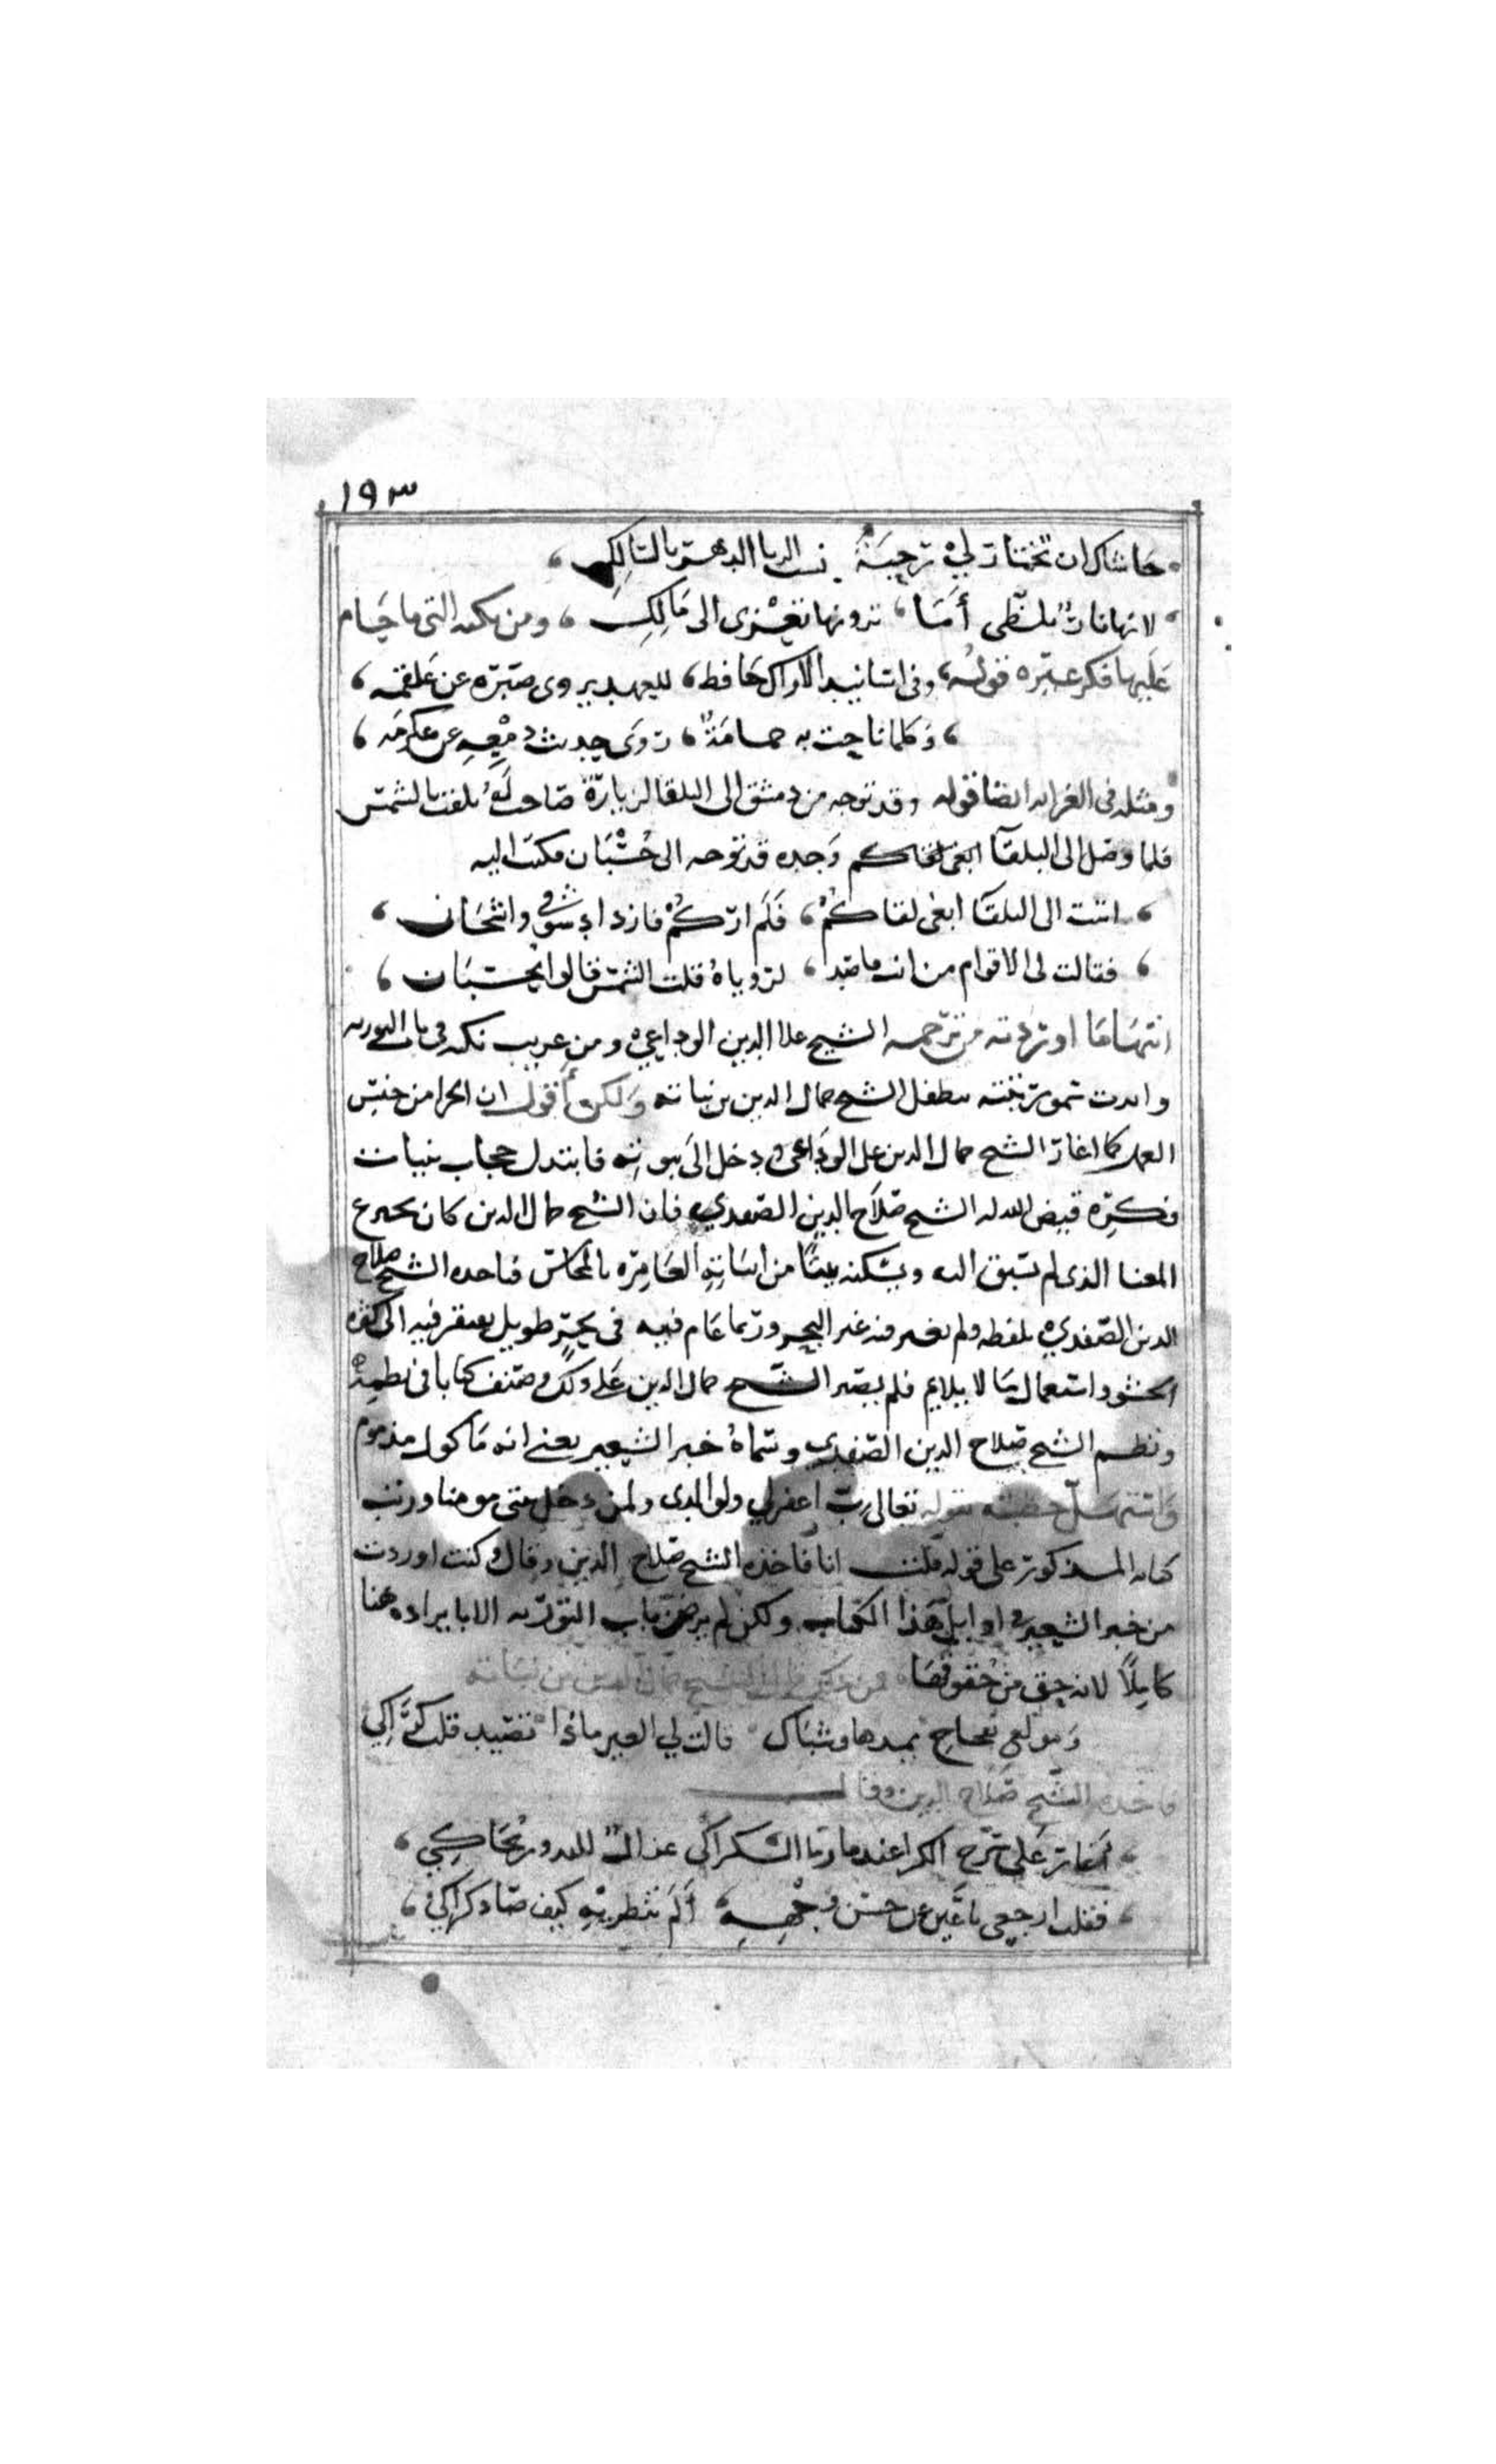 ١٩٣
حاشاك ان تختار لي ترجسة
لانها نار تلظى أما ترونها تعزى الى مالك ومن نكته التي ما حام
عليها فكر غيره قوله وفي اسانيد الاراك حافظ للعهد يروي صبره عن علقمه
وكلما ناحت به حمامة روى حديث دمعه عن عكرمه
ومثله في الغرابه ايضا قوله وقد توجه من دمشق الى البلقا لزيارة صاحب له بلقب بالشمس
فلما وصل الى البلقا ابغي لقاكم وجده قد توجه الى حسبان فكتب اليه
اتيت الى البلقا ابغي لقاكم فلم اركم فازداد شوقي واشجاني
فقالت لي الاقوام من انت قاصد لروياه قلت الشمس قالوا بحسبان
انتهى ما اوردته من ترجمه الشيخ علا الدين الوداعي ومن غريب نكته في باب التوريه
وابدت ثمو تربيته بتطفل الشيخ جمال الدين بن نباته ولكن أقول ان الجزا من جنس
العمل كما اغار الشيخ جمال الدين على الوداعي ودخل الى بيوته فابتذل حجاب بنيات
فكره قيض الله له الشيخ صلاح الدين الصفدي فان الشيخ جمال الدين كان يخترع
المعنا الذي لم يسبق اليه ويسكنه بيتا من ابياته العامره بالمحاسن فياخذه الشيخ صلاح
الدين الصفدي بلفظه ولم يغير فيه غير البحر وربما عام فيه في بحر طويل يفتقر فيه الى كثرة
الحشو واستعمال ما لا يلايم فلم يصبر الشيخ جمال الدين على ذلك وصنف كتابا في نظمه
ونظم الشيخ صلاح الدين الصفدي وسماه خبز الشعير يعني انه ماكول مذموم
واستهل خطبته بقوله تعالى رب اغفر لي ولوالدي ولمن دخل بيتي مومنا ورتب
كتابه المذكور على قوله قلت انا فاخذه الشيخ صلاح الدين وقال وكنت اوردت
من خبز الشعير في اوايل هذا الكتاب ولكن لم يرض باب التوريه الا بايراده هنا
كاملا لانه حق من حقوقها فمن ذلك قول الشيخ جمال الدين بن نباته
ومولع بفخاخ يمدها وشباك قالت لي العين ماذا تصيد قلت كراكي
فاخذه الشيخ صلاح الدين وقال
اغار على سرح الكرا عند ما رما الكراكي غزال للبدور يحاكي
فقلت ارجعي يا عين عن حسن وجهه ألم تنظريه كيف صاد كراكي